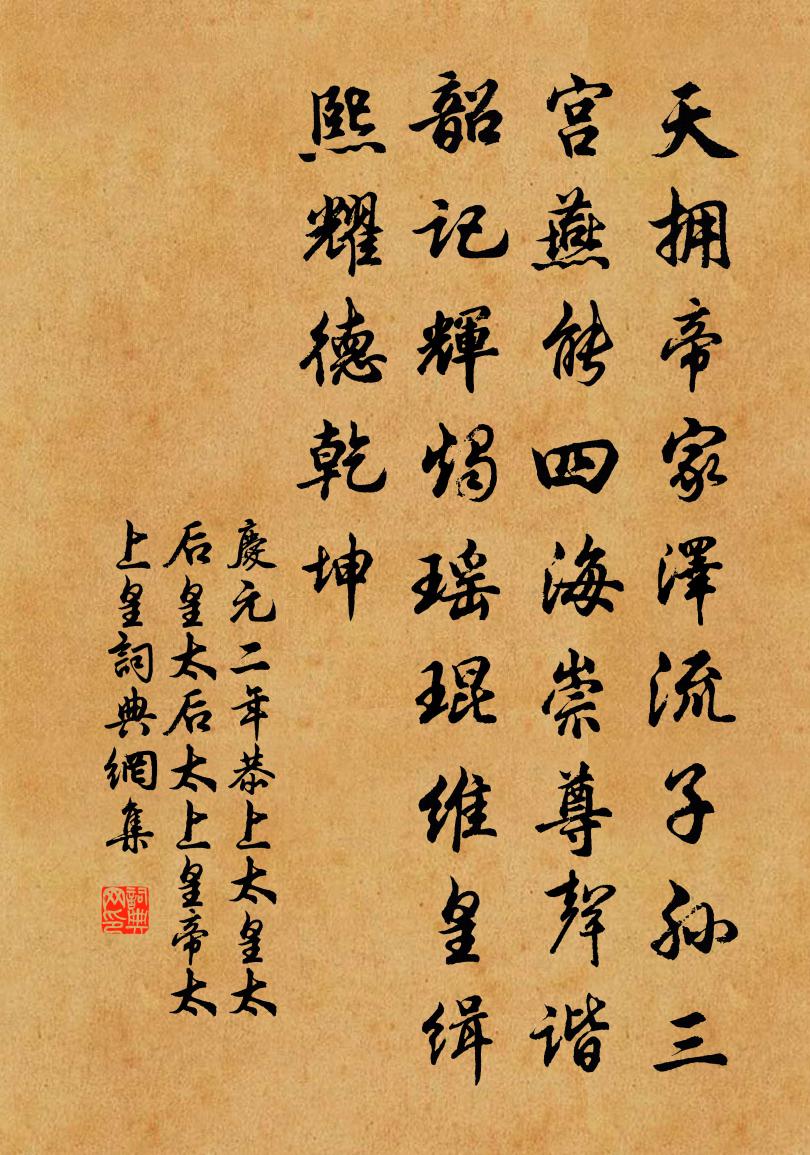 天拥帝家澤流子孙三
宫燕能四海崇尊聲谐
韶记輝燭瑶琨维皇缉
熙耀德乾坤
慶元二年恭上太皇太
后皇太后太上皇帝太
上皇詞典網集
詞典網印